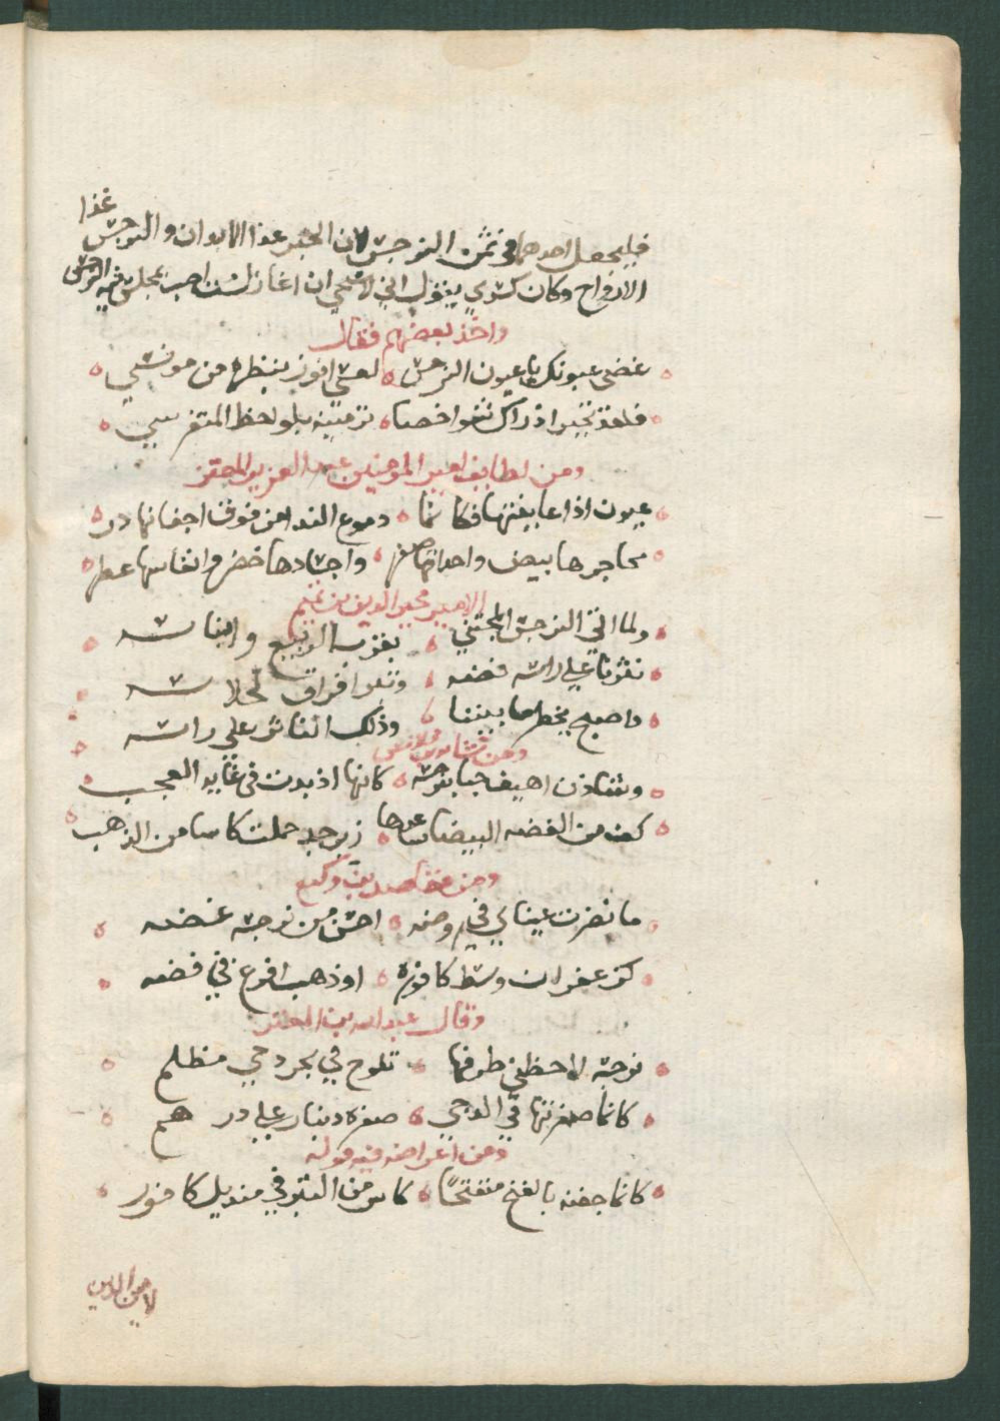 غذا
فليجعل احدهما في ثمن النرجس لان الخبز غذا الابدان والنرجس
الارواح وكان كسري يقول اني لاستحي ان اغازل من احب بمجلس فيه النرجس
واخذ بعضهم فقال
غضي عيونك يا عيون النرجس لعلي افوز بنظرة من مونسي
فلقد تحير اذ راك شواخصا ترمينه بلواحظ المتفرسي
ومن لطايف امير المومنين عبد العزيز المعتز
عيون اذا عاينتها فكانما دموع الندا من فوق اجفانها در
محاجرها بيض واحداقها صفر واجسادها خضر وانفاسها عطر
الامير مجير الدين بن تميم
ولما اتي النرجس المجتني بقرب الربيع وايناسه
نثرنا علي راسه فضه
واصبح يخطر ما بيننا وذلك النثار علي راسه
ومن
وشادن اهيف حيا بنرجسة كانها اذ بدت في غايه العجب
كف من الفضه البيضا ساعدها زبرجد حملت كاسا من الذهب
ومن مقاصد بن وكيع
ما نضرت عيناي في روضه احسن من نرجسه غضه
كزعفران وسط كافوره او ذهب افرغ في فضه
وقال عبد الله بن المعتز
نرجسة لاحظني طرفها تلوح في بحر دجي مظلم
كانما صفرتها في الدجي صفرة دينار علي درهم
ومن اغراضه فيه قوله
كانما جفنه بالغنج منفتحا كاس من التبر في منديل كافور
لامين الدين